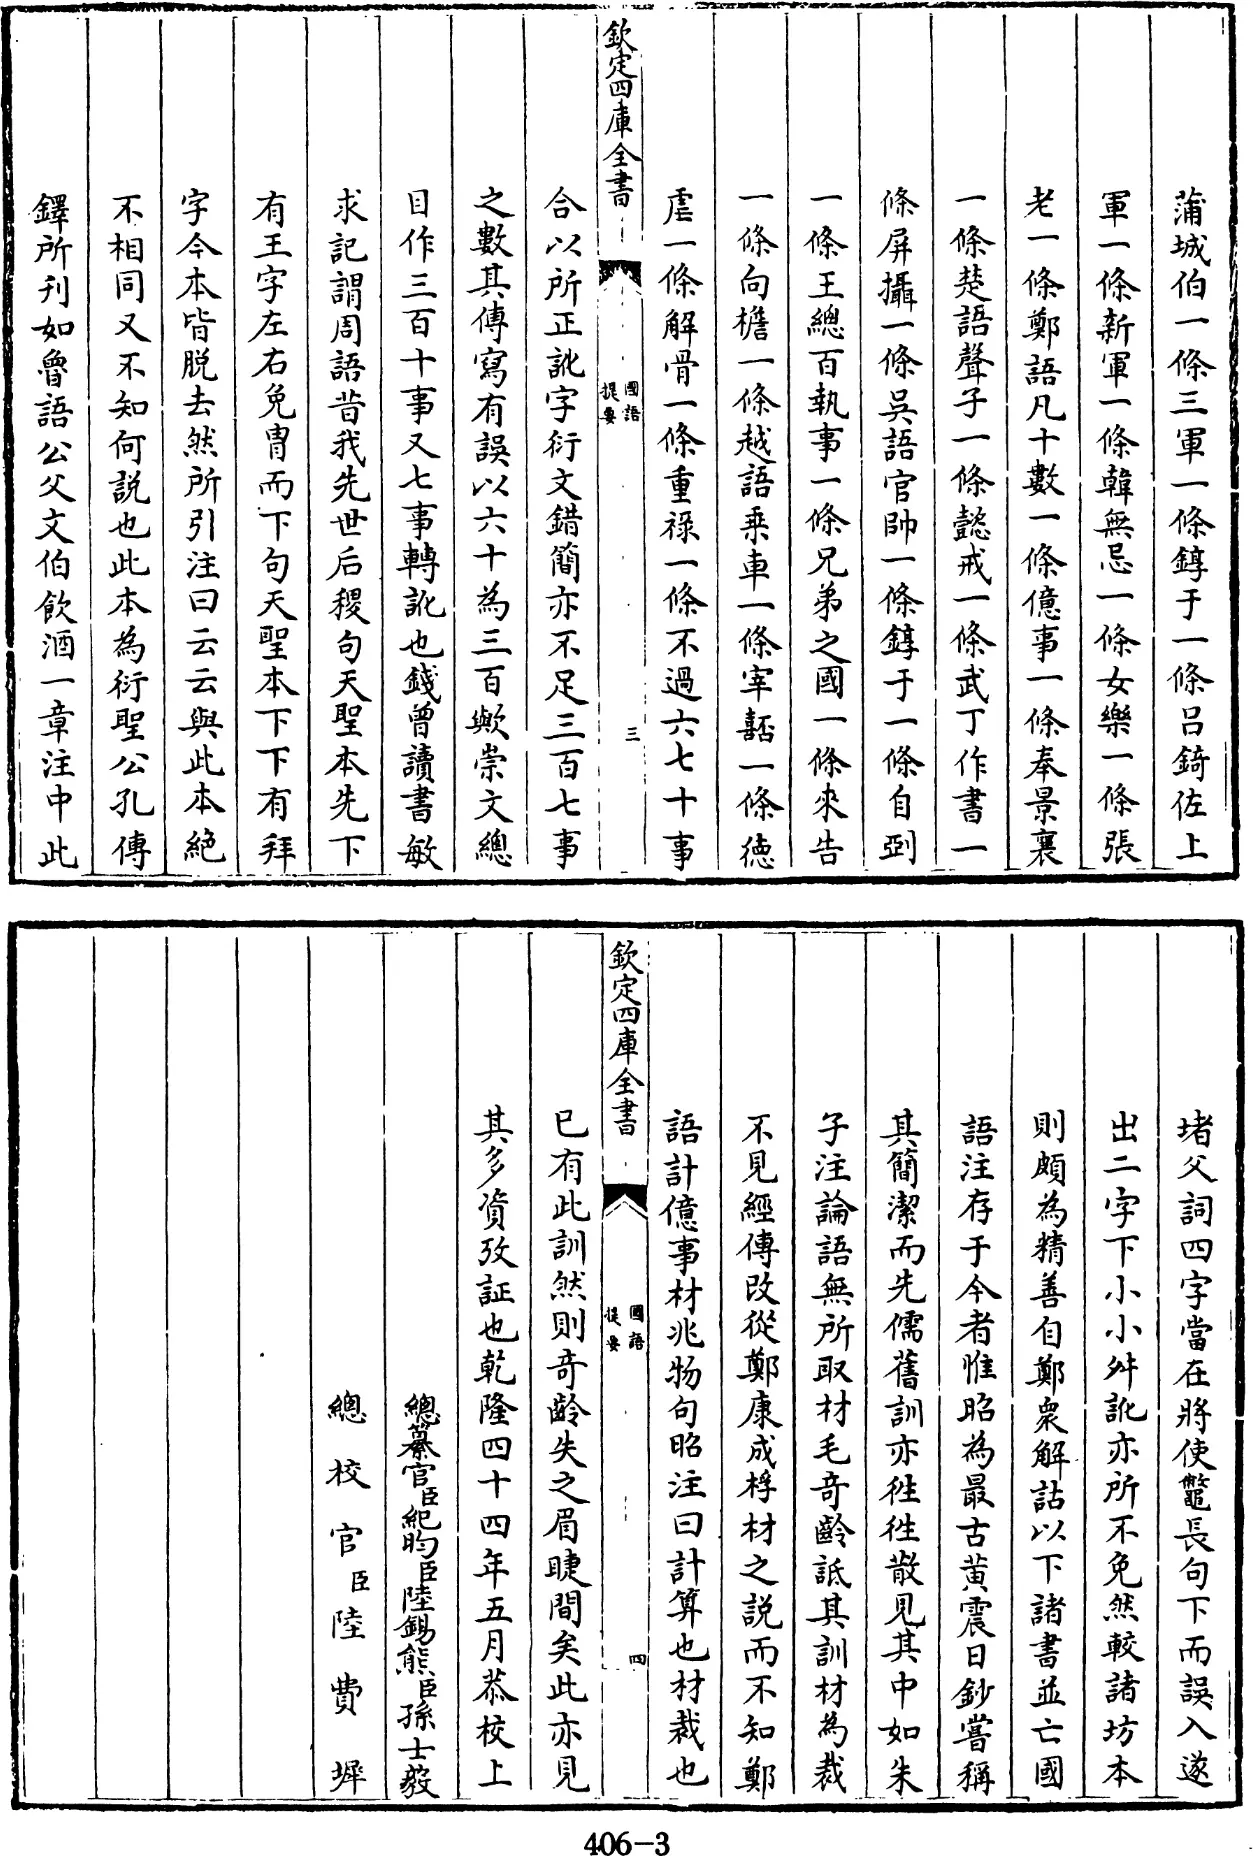 蒲城伯一條三軍一條錞于一條呂錡佐上
軍一條新軍一條韓無忌一條女樂一條張
老一條鄭語凡十數一條億事一條奉景襄
一條楚語聲子一條懿戒一條武丁作書一
條屏攝一條吳語官帥一條錞于一條自剄
一條王總百執事一條兄弟之國一條來告
一條向檐一條越語乘車一條宰嚭一條德
虐一條解骨一條重祿一條不過六七十事
欽定四庫全書
國語
提要
三
合以所正訛字衍文錯簡亦不足三百七事
之數其傳寫有誤以六十為三百歟崇文總
目作三百十事又七事轉訛也錢曾讀書敏
求記謂周語昔我先世后稷句天聖本先下
有王字左右免胄而下句天聖本下下有拜
字今本皆脫去然所引注曰云云與此本絶
不相同又不知何說也此本為衍聖公孔傳
鐸所刊如魯語公父文伯飲酒一章注中此
堵父詞四字當在將使鼈長句下而誤入遂
出二字下小小舛訛亦所不免然較諸坊本
則頗為精善自鄭衆解詁以下諸書並亡國
語注存于今者惟昭為最古黃震日鈔嘗稱
其簡潔而先儒舊訓亦往往散見其中如朱
子注論語無所取材毛奇齡詆其訓材為裁
不見經傳改從鄭康成桴材之說而不知鄭
語計億事材兆物句昭注曰計算也材裁也
欽定四庫全書
國語
提要
四
已有此訓然則奇齡失之眉睫間矣此亦見
其多資攷証也乾隆四十四年五月恭校上
總纂官臣紀昀臣陸錫熊臣孫士毅
總校官臣陸費墀
406-3